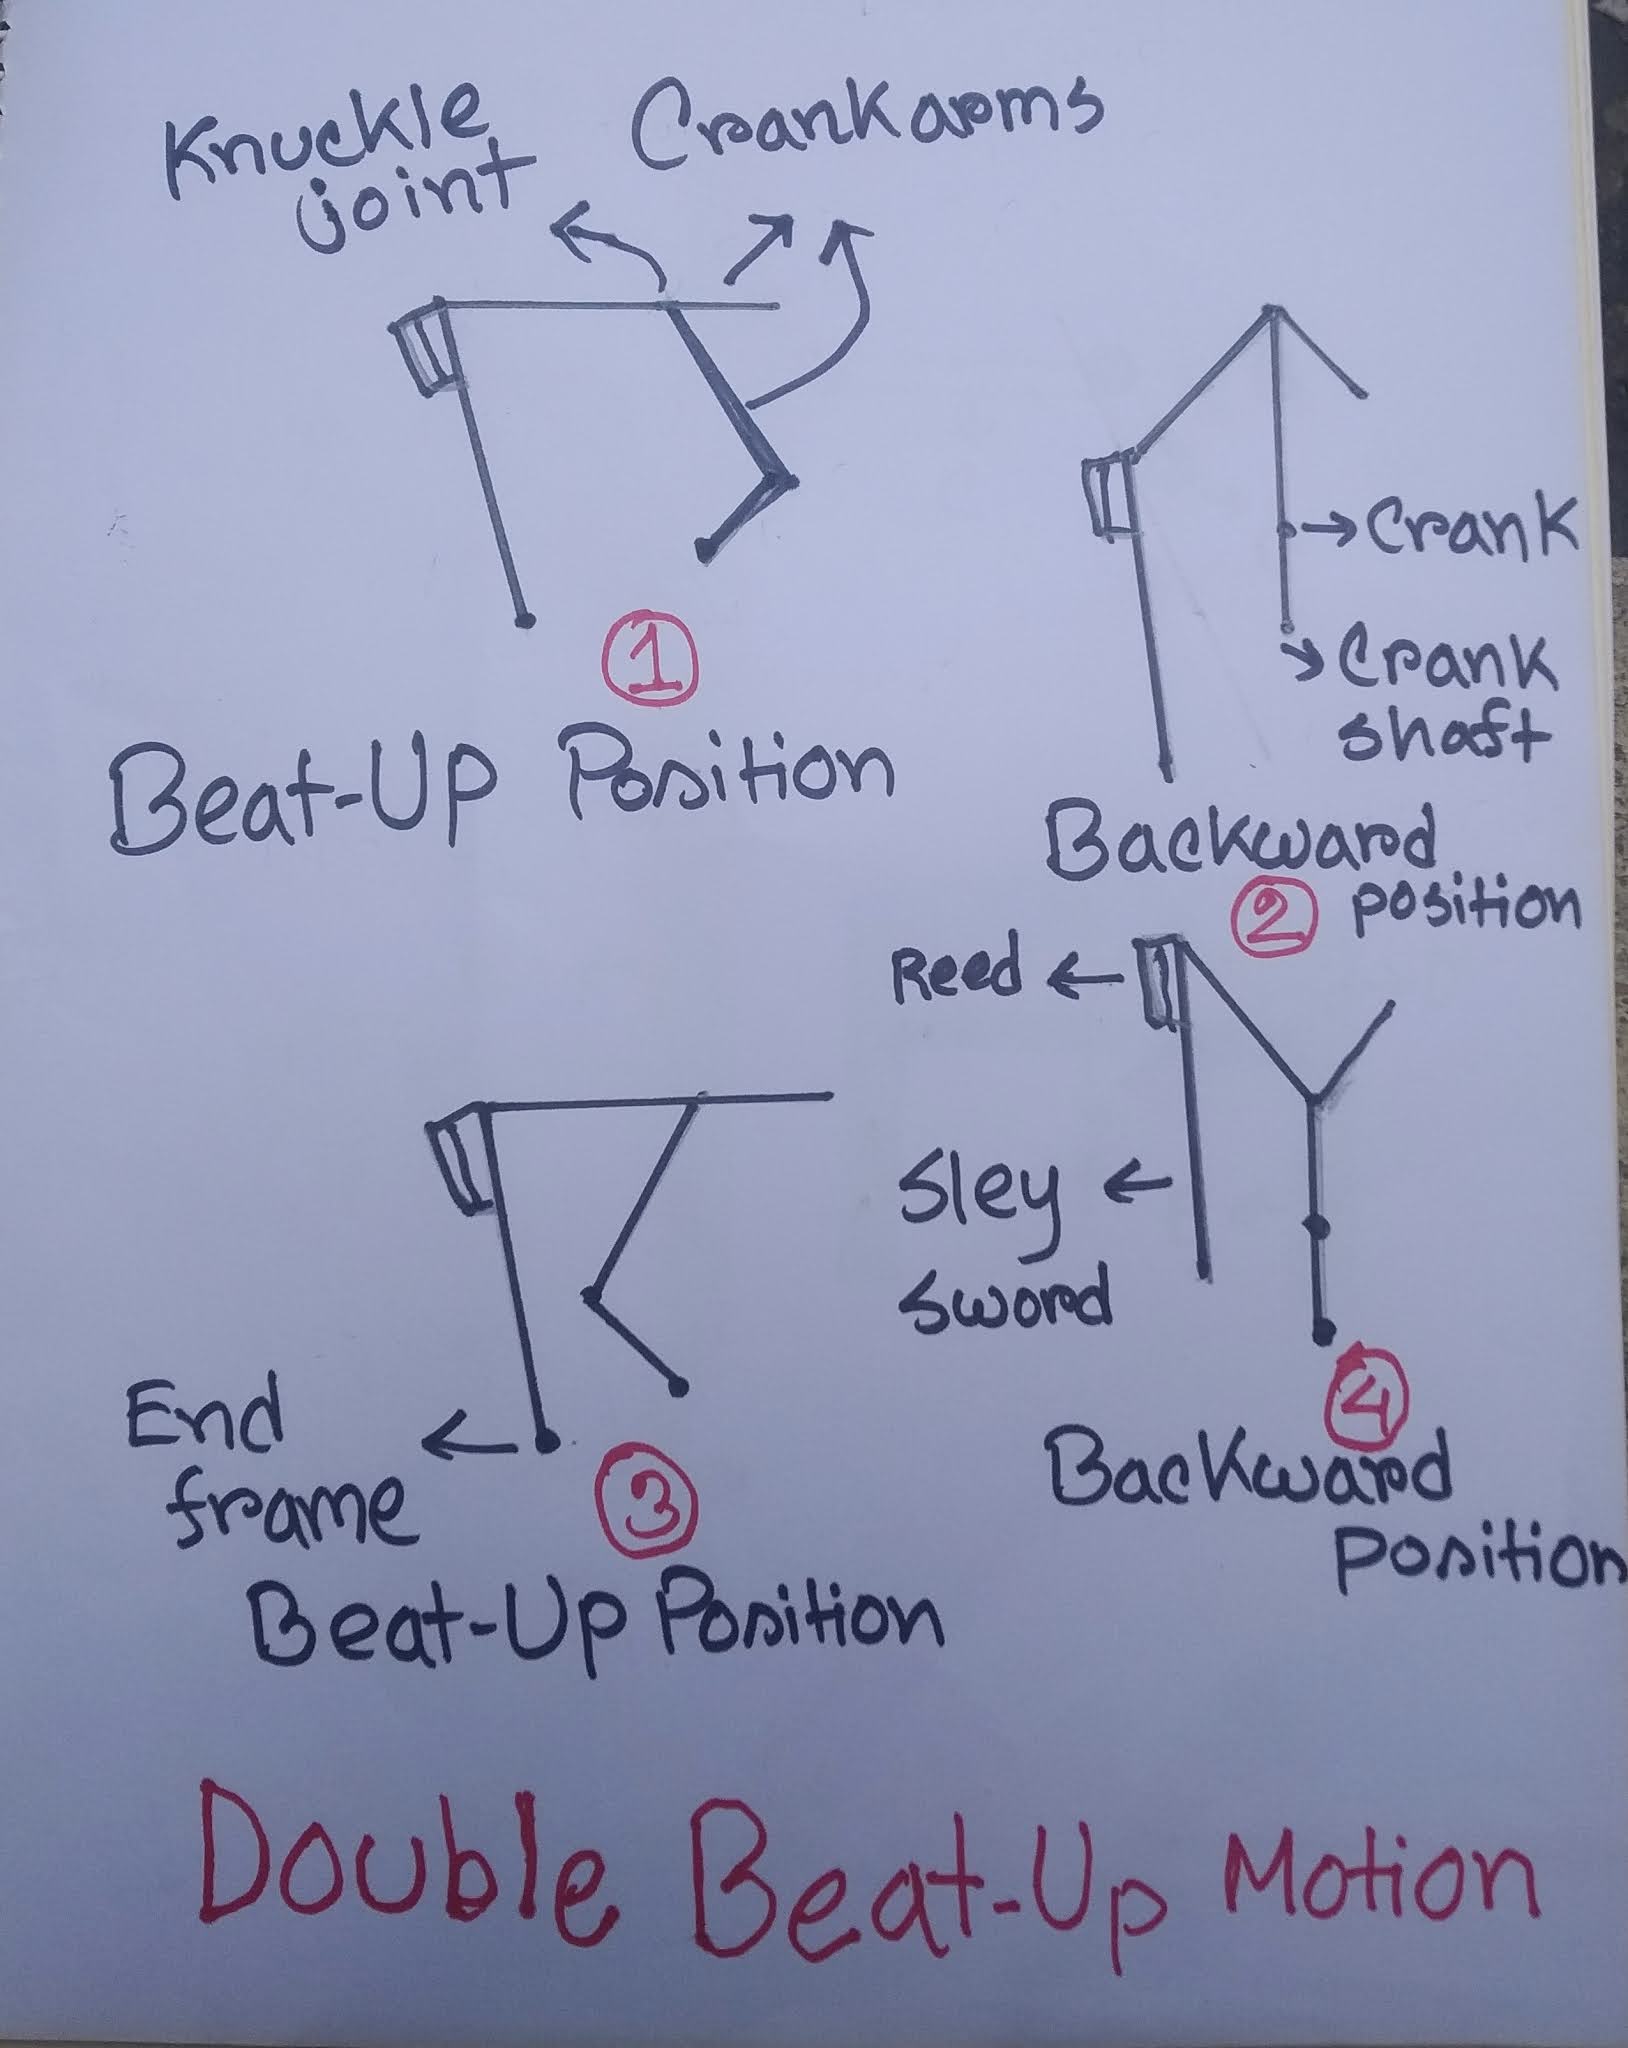 Knuckle
joint
Crank arms
1
Beat-Up Position
Crank
Crank
shaft
Backward
2 position
Reed
Sley
sword
End
frame
3
Beat-Up Position
4
Backward
Position
Double Beat-Up Motion